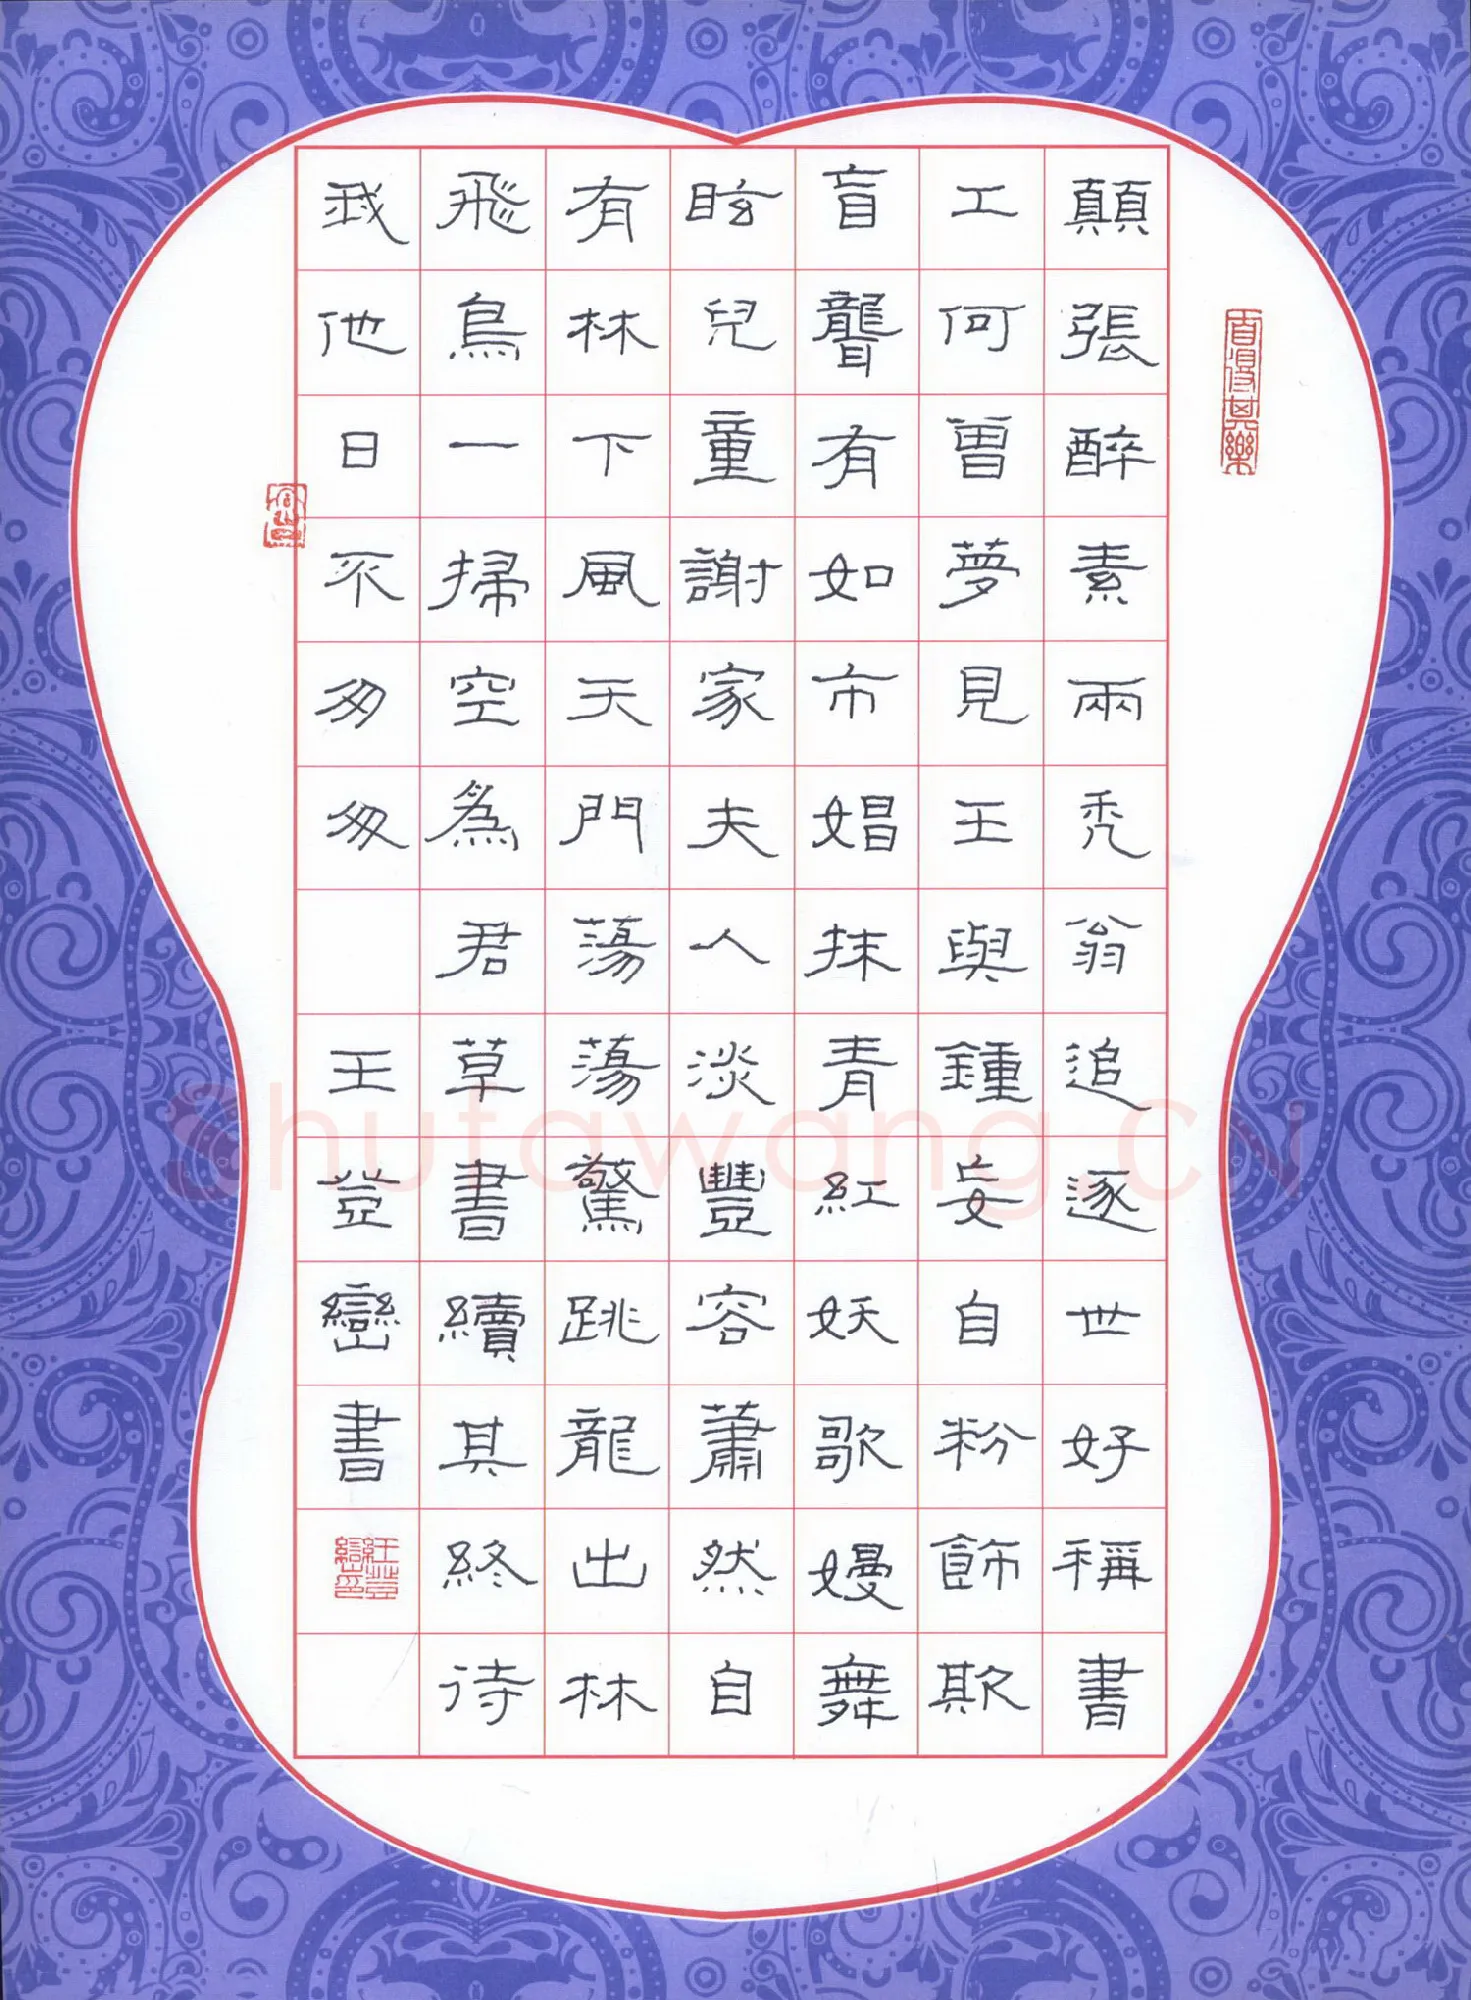 顛張醉素兩禿翁追逐世好稱書
工何曾夢見王與鍾妄自粉飾欺
盲聾有如市娼抹青紅妖歌嫚舞
眩兒童謝家夫人淡豐容蕭然自
有林下風天門蕩蕩驚跳龍出林
飛鳥一掃空為君草書續其終待
我他日不匆匆
王豈巒書
Shufawang.CN